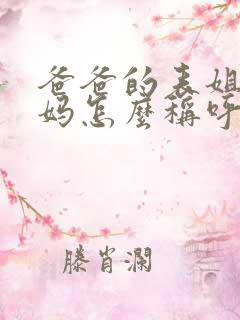 爸爸的表姐
妈怎麼稱呼
滕肖澜